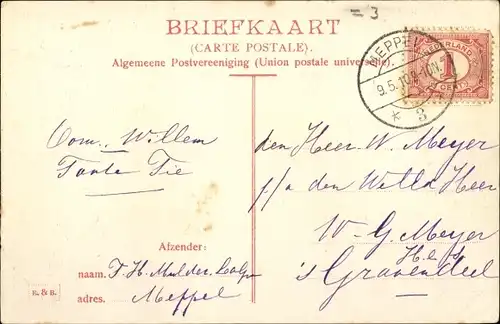 = 3
BRIEFKAART
(CARTE POSTALE).
Algemeene Postvereeniging (Union postale universelle).
MEPPEL
9.5.10
3
NEDERLAND
1
CENT
Oom. Willem
Tante Fie
den Heer W. Meyer
p/a den Weled Heer
W-G. Meyer
's Gravendeel
Afzender:
naam. F. H. Mulder
adres. Meppel
E. & B.